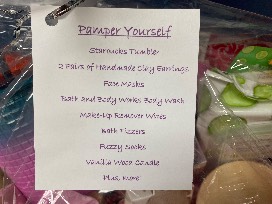 Pamper Yourself
Starbucks Tumbler
2 Pairs of Handmade Clay Earrings
Face Masks
Bath and Body Works Body Wash
Make-Up Remover Wipes
Bath Fizzers
Fuzzy Socks
Vanilla Wood Candle
Plus, more